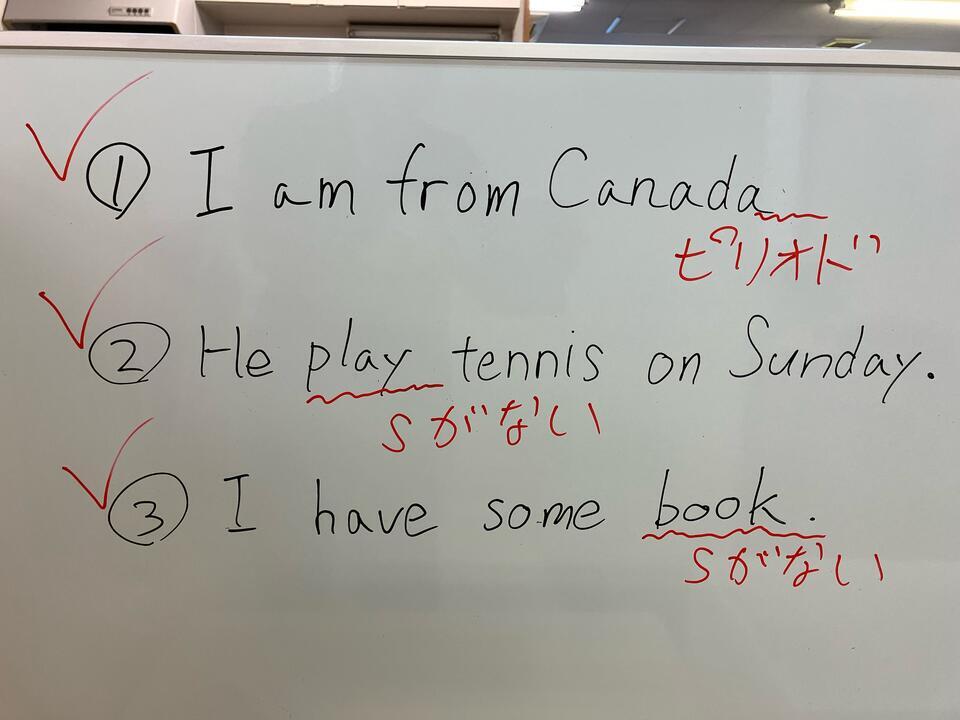 ① I am from Canada
ピリオド
② He play tennis on Sunday.
sがない
③ I have some book.
sがない